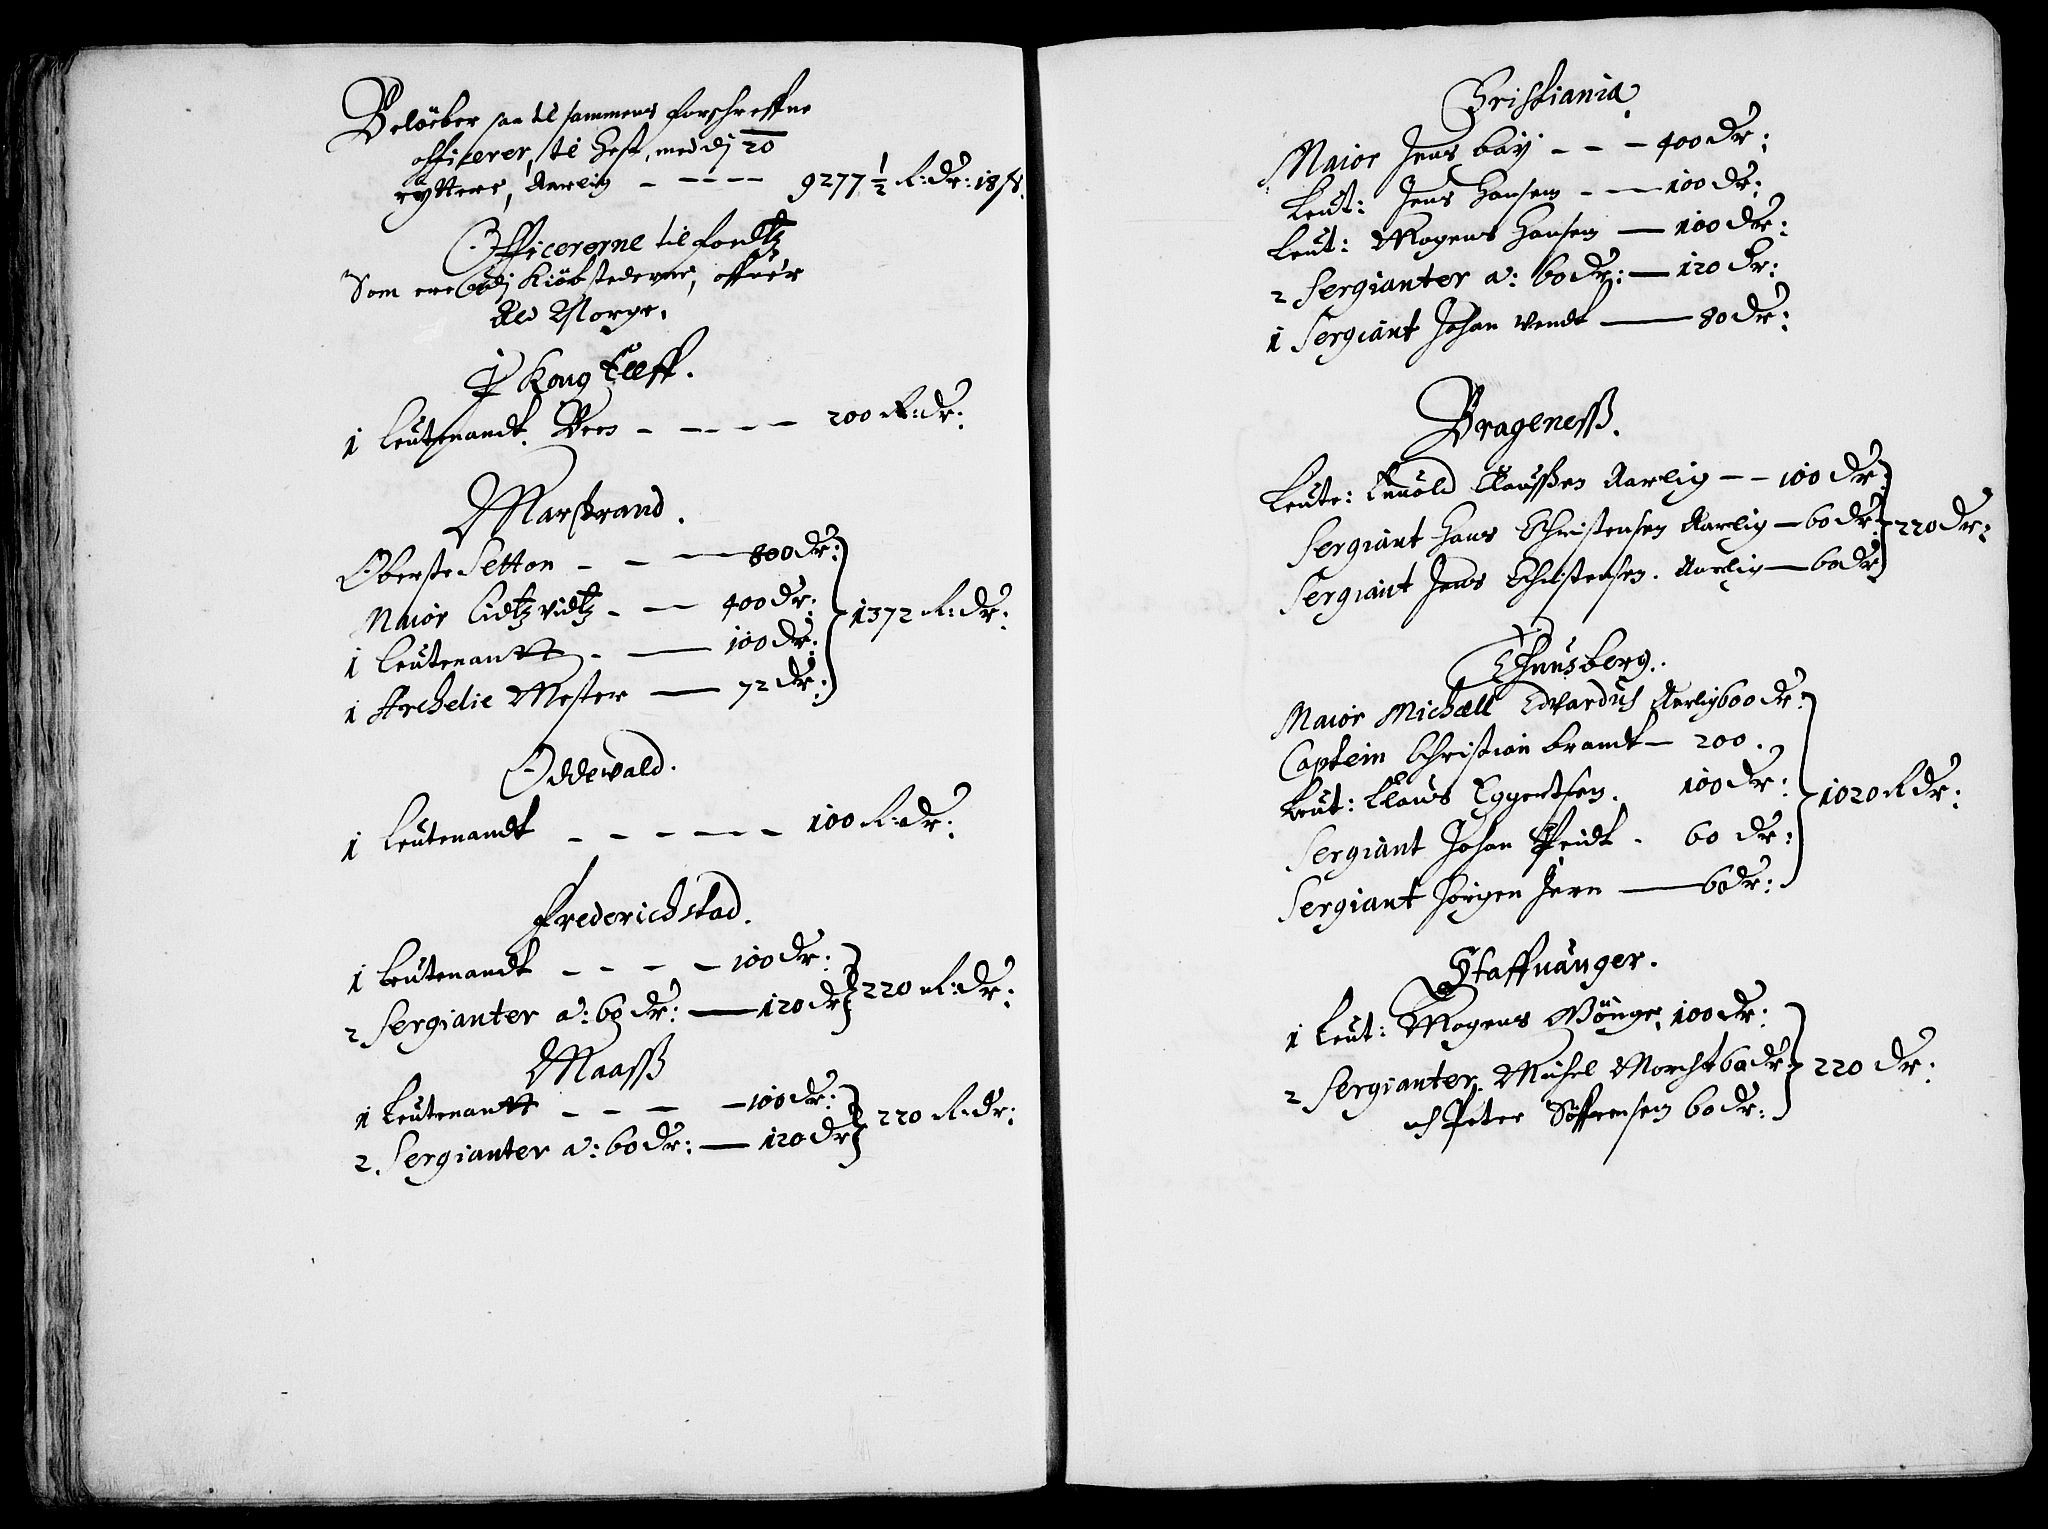 Beløeber saa til sammens forschreffne
officerer, til Hest, med dj 20
ryttere, Aarlig - - - - 9277 1/2 R: dr: 18 s.
Officererne til foedtz
Som ere udj Kiöbstederne, offuer
Ald Norge.
I Kong Elleff.
1 Leutenandt. - - - - 200 R: dr:
Marstrand.
Oberste Setton - - - 800 dr:
Maior - - 400 dr:
1 Leutenantt - - 100 dr: 1372 R: dr:
1 Archelie Mester - 72 dr:
Oddewald.
1 Leutenandt - - - - - - 100 R: dr:
Frederichstad.
1 Leutenandt - - - - 100 dr:
2 Sergianter a: 60 dr: - 120 dr 220 R: dr:
Maass
1 Leutenantt - - - - 100 dr:
2. Sergianter a: 60 dr: - 120 dr 220 R: dr:
Cristiania.
Maior Jens bäy - - - 400 dr:
Leut: Jens Hansen - - 100 dr:
Leut: Mogens Hansen - 100 dr:
2 Sergianter a: 60 dr: - 120 dr:
1 Sergiant Johan Wendt - 80 dr:
Brageness.
Leute: Claussen Aarlig - - 100 dr:
Sergiant Hans Christensen Aarlig - 60 dr: 220 dr:
Sergiant Jens Christensen. Aarlig - 60 dr
Thunsberg.
Maior Michaell Edvardus Aarlig 600 dr:
Captein Christian brandt - 200.
Leut: Claus Eggertsen. 100 dr: 1020 R dr:
Sergiant Johan - 60 dr:
Sergiant Jörgen Jern - 60 dr:
Staffuanger.
1 Leut: Mogens Mönge, 100 dr:
2 Sergianter. Michel Morcht 60 dr 220 dr:
och Peter Söffrensen 60 dr: